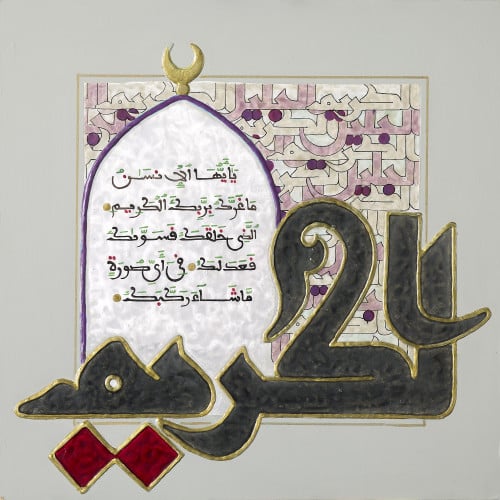 يَٰأَيُّهَا ٱلْإِنسَٰنُ
مَا غَرَّكَ بِرَبِّكَ ٱلْكَرِيمِ
ٱلَّذِى خَلَقَكَ فَسَوَّىٰكَ
فَعَدَلَكَ فِىٓ أَىِّ صُورَةٍ
مَّا شَآءَ رَكَّبَكَ
الكريم